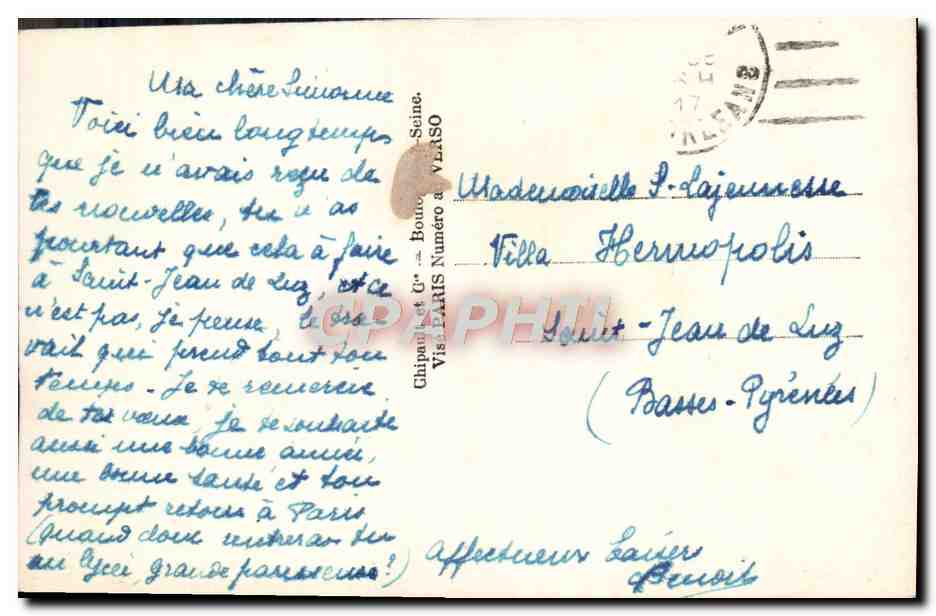 Ma chère Simonne
Voici bien longtemps
que je n'avais reçu de
tes nouvelles, tu n'as
pourtant que cela à faire
à Saint-Jean de Luz, et ce
n'est pas, je pense, le tra-
vail qui prend tout ton
temps - Je te remercie
de tes vœux, je te souhaite
aussi une bonne année,
une bonne santé et ton
prompt retour à Paris
(quand donc rentreras tu
au lycée, grande paresseuse?)
Affectueux baisers
Benoit
Chipault et Cie - Boulogne-Seine.
Visé PARIS Numéro au VERSO
CPAPHIL
17
ORLEANS
Mademoiselle S. Lajeunesse
Villa Hermopolis
Saint-Jean de Luz
(Basses-Pyrénées)